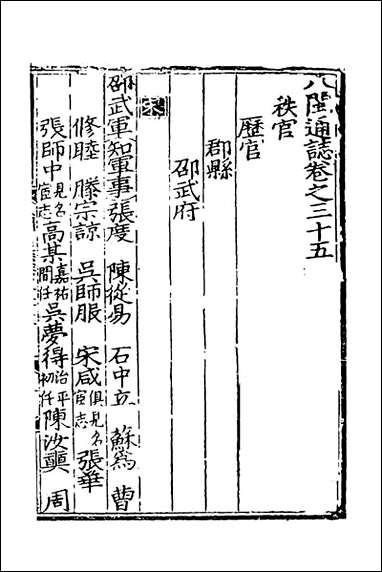 八閩通誌卷之三十五
秩官
歷官
郡縣
邵武府
宋
邵武軍知軍事張度 陳從易 石中立 蘇為 曹
修睦 滕宗諒 吳師服 宋咸俱見名宦志 張華
張師中見名宦志 高某嘉祐間任 吳夢得治平初任 陳汝奭 周